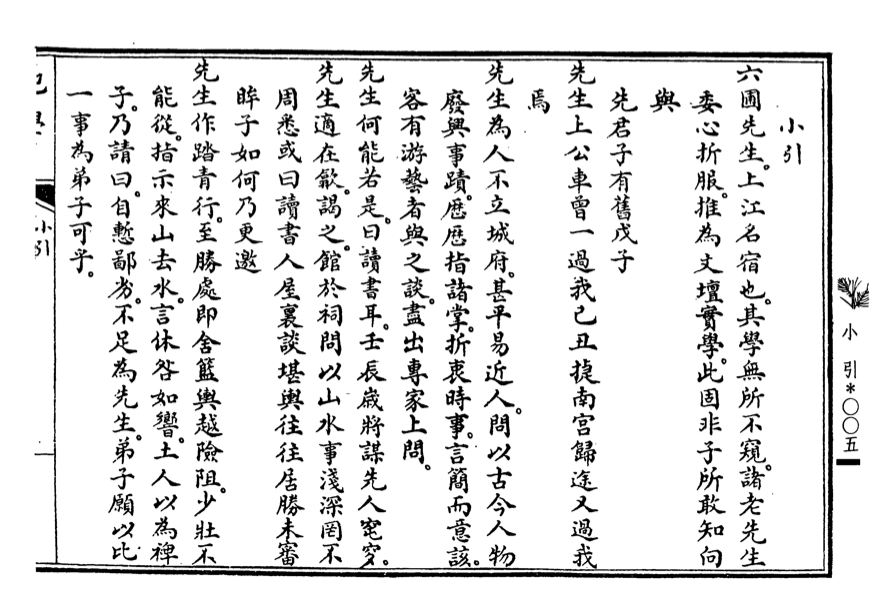 小引
六圃先生。上江名宿也。其學無所不窺。諸老先生
委心折服。推為文壇實學。此固非予所敢知向
與
先君子有舊戊子
先生上公車曾一過我己丑捷南宮歸途又過我
焉
先生為人不立城府。甚平易近人。問以古今人物
廢興事蹟。歷歷指諸掌。折衷時事。言簡而意該。
客有游藝者與之談。盡出專家上問。
先生何能若是。曰讀書耳。壬辰歲將謀先人窀穸。
先生適在歙。謁之。館於祠問以山水事淺深罔不
周悉或曰讀書人屋裏談堪輿往往居勝未審
眸子如何乃更邀
先生作踏青行。至勝處即舍籃輿越險阻。少壯不
能從。指示來山去水。言休咎如響。土人以為禆
子。乃請曰。自慙鄙劣。不足為先生。弟子願以比
一事為弟子可乎。
小引
小 引*〇〇五